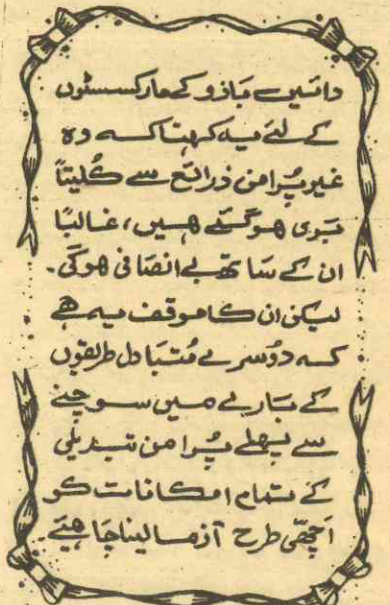 دائیں بازو کے مارکسسٹوں
کے لئے یہ کہنا کہ وہ
غیر پُرامن ذرائع سے کُلیتاً
بَری ہو گئے ہیں، غالباً
ان کے ساتھ بے انصافی ہوگی۔
لیکن ان کا موقف یہ ہے
کہ دُوسرے مُتبادل طریقوں
کے بارے میں سوچنے
سے پہلے پُرامن تبدیلی
کے تمام امکانات کو
اچھّی طرح آزما لینا چاہیے۔